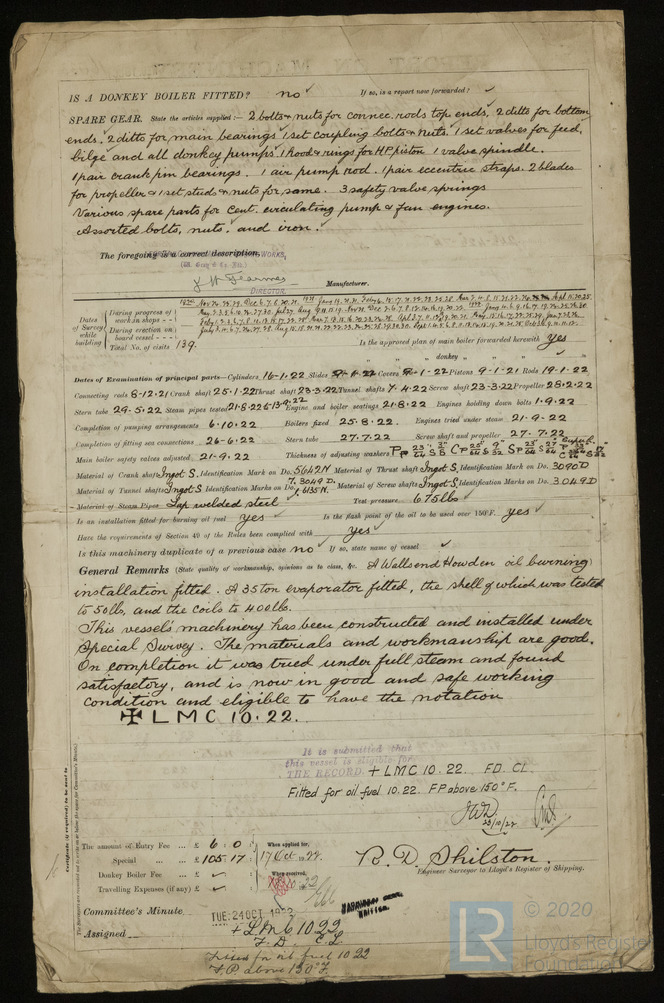 IS A DONKEY BOILER FITTED? no If so, is a report now forwarded?
SPARE GEAR. State the articles supplied:— 2 bolts & nuts for connec. rods top ends, 2 ditto for bottom
ends, 2 ditto for main bearings 1 set coupling bolts & nuts. 1 set valves for feed,
bilge and all donkey pumps 1 hood & rings for HP piston 1 valve spindle.
1 pair crank pin bearings. 1 air pump rod. 1 pair eccentric straps. 2 blades
for propeller & 1 set studs & nuts for same. 3 safety valve springs
Various spare parts for cent. circulating pump & fan engines.
Assorted bolts, nuts, and iron.
The foregoing is a correct description,
DIRECTOR. Manufacturer.
Dates of Survey while building
During progress of work in shops - -
During erection on board vessel - - -
Total No. of visits 139.
Is the approved plan of main boiler forwarded herewith yes
" " " donkey " " "
Dates of Examination of principal parts—Cylinders 16-1-22 Slides Covers 1-22 Pistons 9-1-21 Rods 19-1-22
Connecting rods 8-12-21 Crank shaft 25-1-22 Thrust shaft 23-3-22 Tunnel shafts 7-4-22 Screw shaft 23-3-22 Propeller 28-2-22
Stern tube 29-5-22 Steam pipes tested 21-8-22 & 13-9-22 Engine and boiler seatings 21-8-22 Engines holding down bolts 1-9-22
Completion of pumping arrangements 6-10-22 Boilers fixed 25-8-22. Engines tried under steam 21-9-22
Completion of fitting sea connections 26-6-22 Stern tube 27-7-22 Screw shaft and propeller 27-7-22
Main boiler safety valves adjusted 21-9-22 Thickness of adjusting washers
Material of Crank shaft Ingot S. Identification Mark on Do. 5642N Material of Thrust shaft Ingot S. Identification Mark on Do. 3090D
Material of Tunnel shafts Ingot S. Identification Marks on Do. 3049D. 1,6135N. Material of Screw shafts Ingot S. Identification Marks on Do. 3049D
Material of Steam Pipes Lap welded steel Test pressure 675 lbs
Is an installation fitted for burning oil fuel yes Is the flash point of the oil to be used over 150°F. yes
Have the requirements of Section 49 of the Rules been complied with yes
Is this machinery duplicate of a previous case no If so, state name of vessel
General Remarks (State quality of workmanship, opinions as to class, &c. A Wallsend Howden oil burning
installation fitted. A 35 ton evaporator fitted, the shell of which was tested
to 50 lbs, and the coils to 400 lbs.
This vessel's machinery has been constructed and installed under
Special Survey. The materials and workmanship are good.
On completion it was tried under full steam and found
satisfactory, and is now in good and safe working
condition and eligible to have the notation
✠ LMC 10.22.
It is submitted that
this vessel is eligible for
THE RECORD + LMC 10.22. FD. CL.
Fitted for oil fuel 10.22. FP above 150°F.
25/10/22
Certificate (if required) to be sent to
The amount of Entry Fee ... £ 6 : 0 When applied for,
Special ... ... £ 105 : 17 17 Oct 1922.
Donkey Boiler Fee ... £ When received,
Travelling Expenses (if any) £
R. D. Shilston.
Engineer Surveyor to Lloyd's Register of Shipping.
Committee's Minute TUE. 24 OCT 1922
Assigned + LMC 10 22
F. D. C L
Fitted for oil fuel 10 22
F.P. above 150°F.
LR © 2020
Lloyd's Register
Foundation